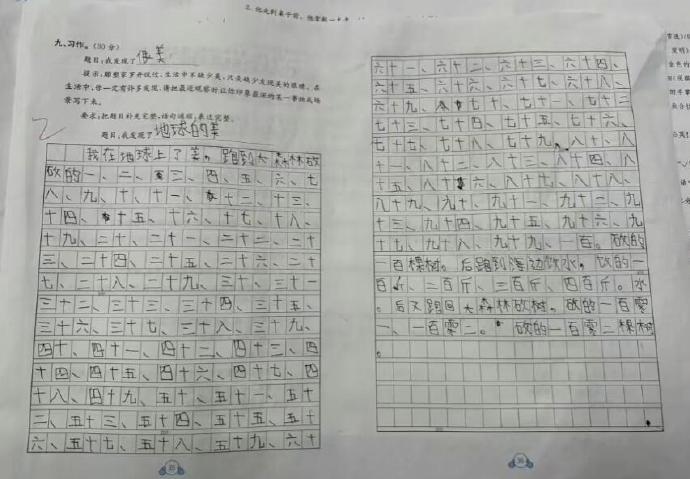 2. 他走到桌子前，他拿起一
九、习作。(30分)
题目：我发现了美
提示：罗丹说过，生活中不缺少美，只是缺少发现美的眼睛。在
生活中，你一定有许多发现，请把最近观察时让你印象最深的某一事物或场
景写下来。
要求：把题目补充完整，语句通顺，表达完整。
题目：我发现了地球的美
我在地球上了美。跑到大森林砍
砍的一、二、三、四、五、六、七
八、九、十、十一、十二、十三、
十四、十五、十六、十七、十八、
十九、二十、二十一、二十二、二十
三、二十四、二十五、二十六、二十
七、二十八、二十九、三十、三十一
三十二、三十三、三十四、三十五、
三十六、三十七、三十八、三十九、
四十、四十一、四十二、四十三、四
十四、四十五、四十六、四十七、四
十八、四十九、五十、五十一、五十
二、五十三、五十四、五十五、五十
六、五十七、五十八、五十九、六十
六十一、六十二、六十三、六十四、
六十五、六十六、六十七、六十八、
六十九、七十、七十一、七十二、
七十三、七十四、七十五、七十六、
七十七、七十八、七十九、八十、八
十一、八十二、八十三、八十四、八
十五、八十六、八十七、八十八、
八十九、九十、九十一、九十二、九
十三、九十四、九十五、九十六、九
十七、九十八、九十九、一百。砍的
一百棵树。后跑到海边饮水。饮的一
百斤、二百斤、三百斤、四百斤。水
。后又跑回大森林砍树。砍的一百零
一、一百零二。砍的一百零二棵树
。
35
36